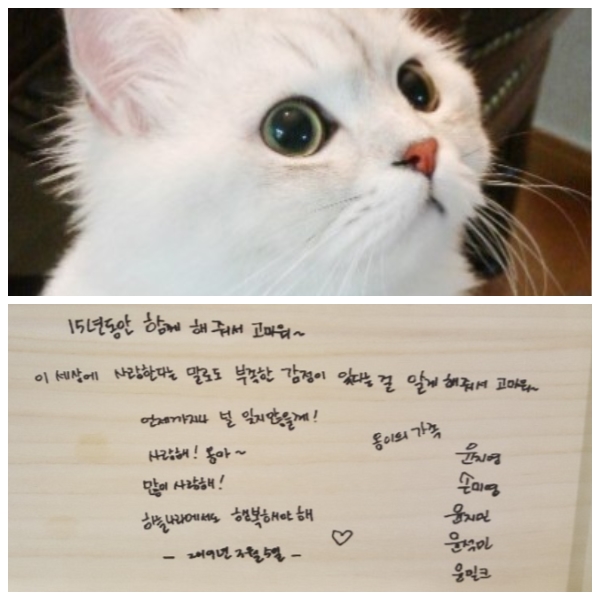 15년동안 함께 해 줘서 고마워~
이 세상에 사랑한다는 말로도 부족한 감정이 있다는 걸 알게 해줘서 고마워~
언제까지나 널 잊지않을게!
사랑해! 몽아~
많이 사랑해!
하늘나라에서도 행복해야 해
- 2019년 2월 5일 -
몽이의 가족
윤지영
손미영
윤지민
윤석민
윤밀크